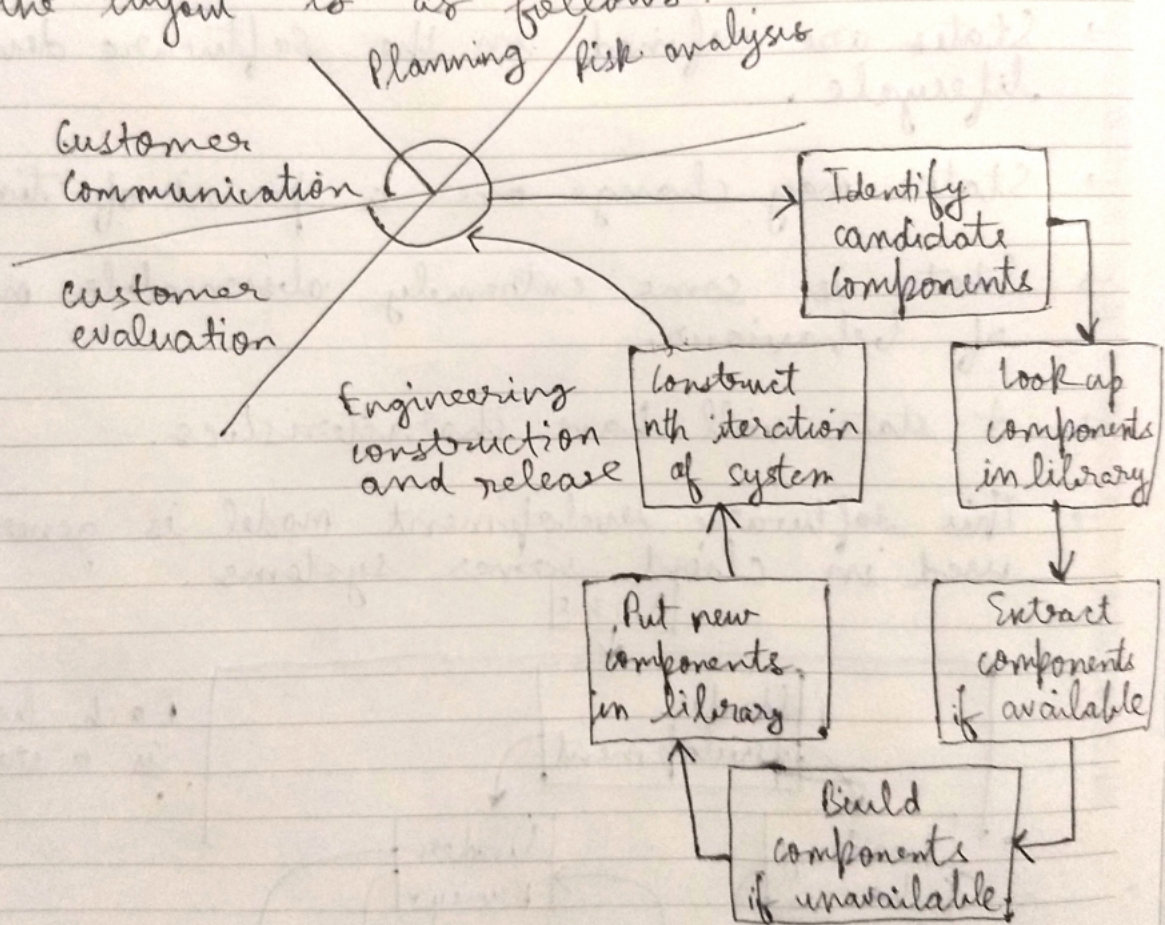 the layout is as follows.
Planning
Risk analysis
Customer
Communication
Customer
evaluation
Engineering
construction
and release
Identify
candidate
components
Look up
components
in library
Extract
components
if available
Build
components
if unavailable
Put new
components
in library
Construct
nth iteration
of system